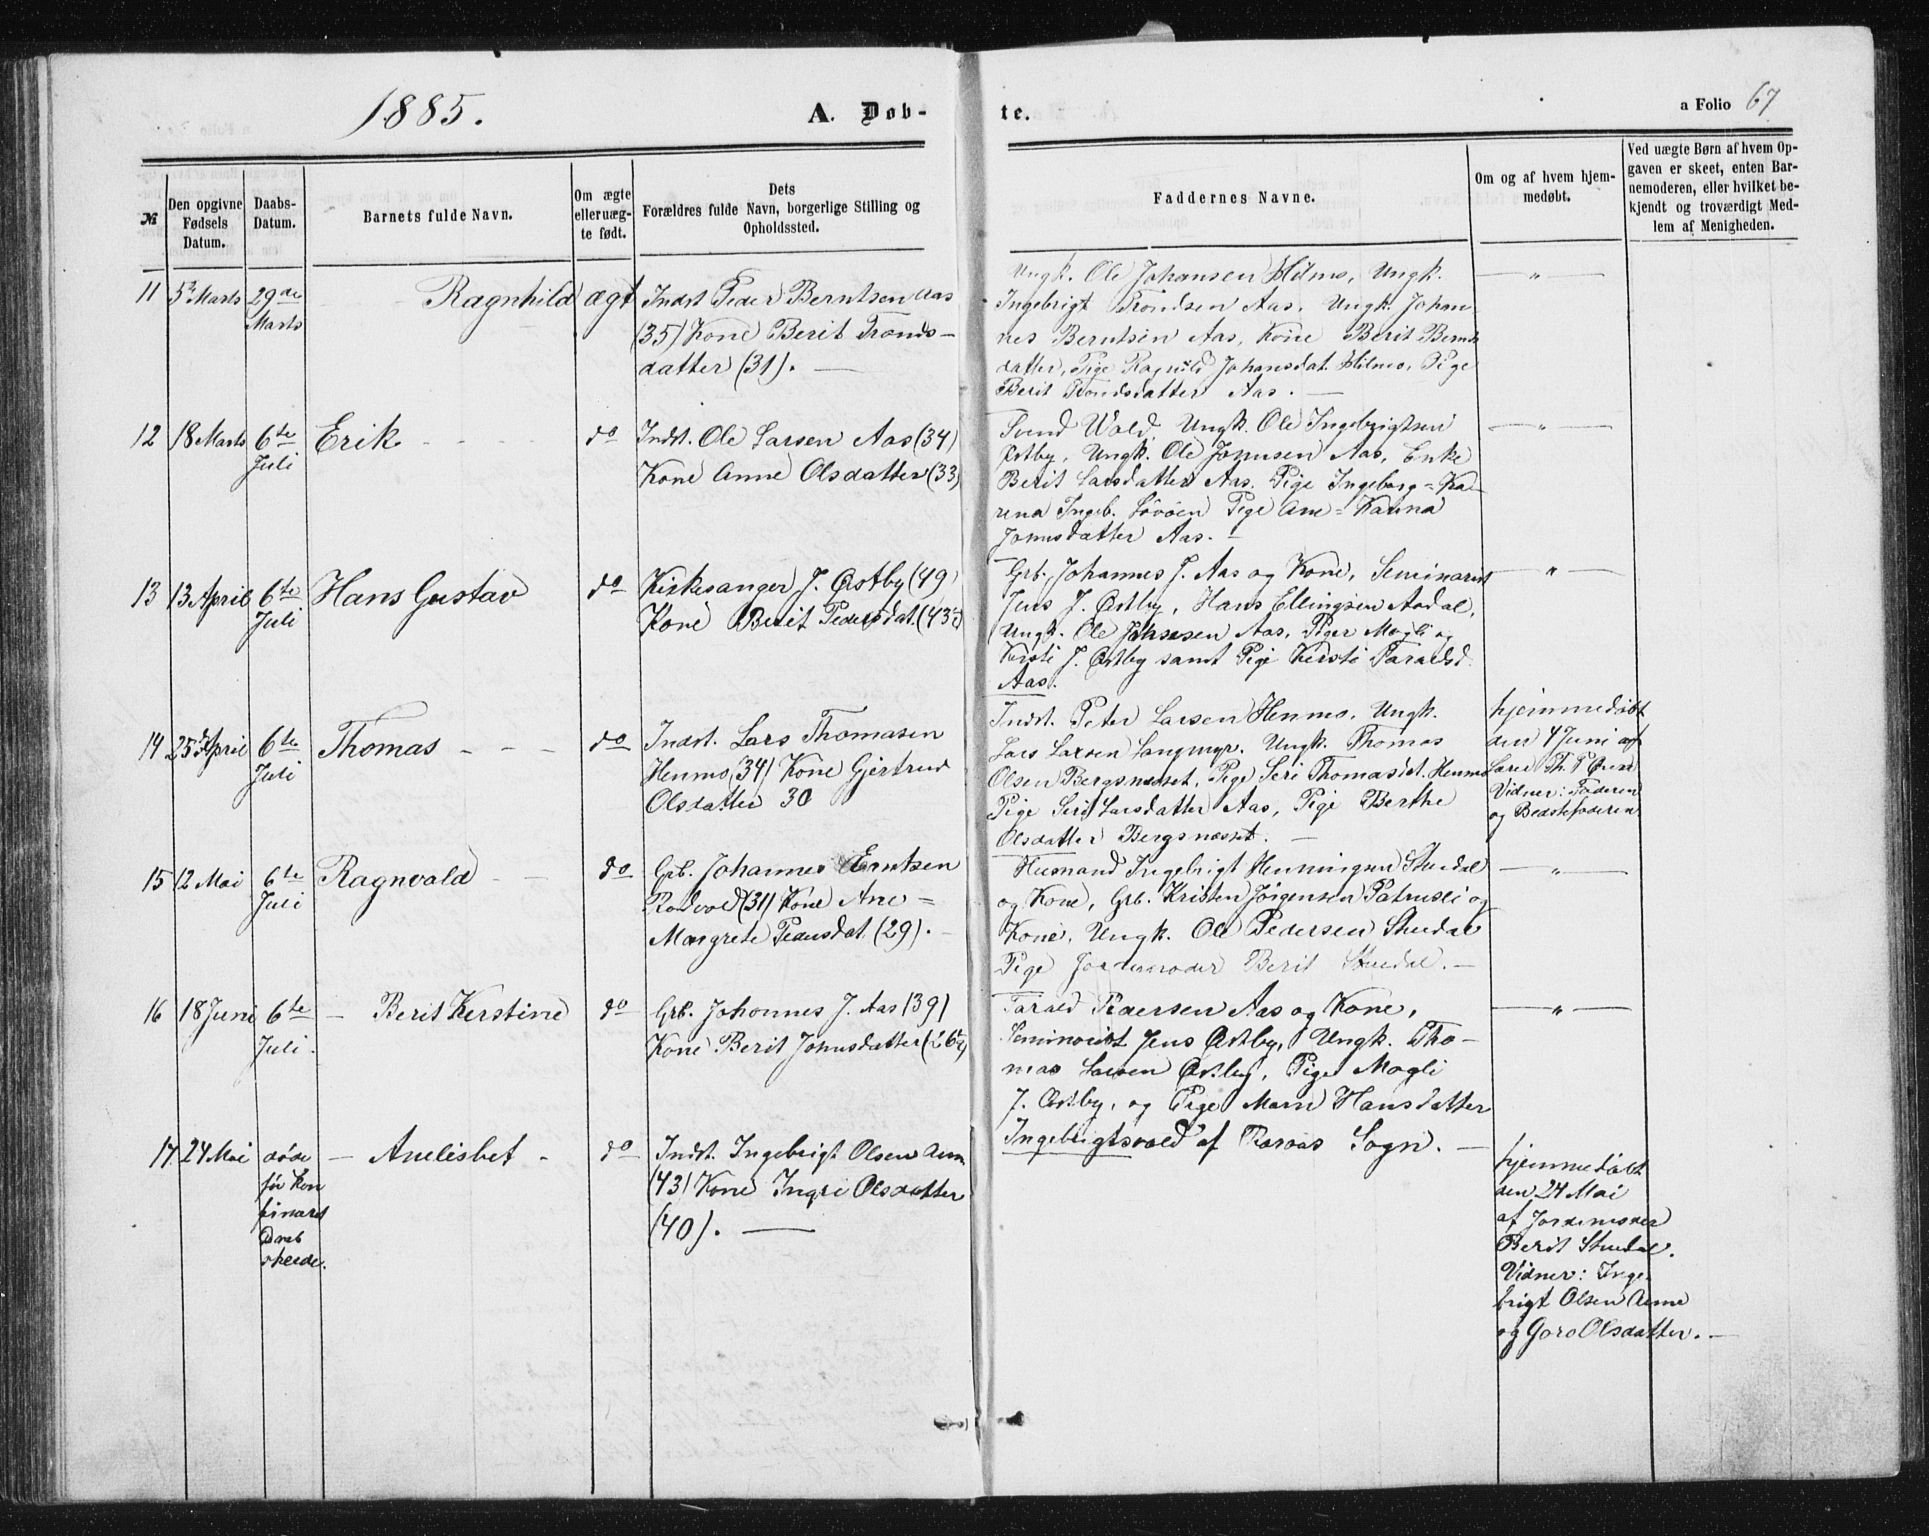 1885.
A. Døb-
te.
a Folio 67
№
Den opgivne
Fødsels
Datum.
Daabs-
Datum.
Barnets fulde Navn.
Om ægte
eller uæg-
te født.
Dets
Forældres fulde Navn, borgerlige Stilling og
Opholdssted.
Faddernes Navne.
Om og af hvem hjem-
medøbt.
Ved uægte Børn af hvem Op-
gaven er skeet, enten Bar-
nemoderen, eller hvilket be-
kjendt og troværdigt Med-
lem af Menigheden.
11
5 Marts
29de
Marts
Ragnhild
ægt
Indst Peder Berntsen Aas
(35) Kone Berit Tronds-
datter (31). —
Ungk. Ole Johansen Hilmo, Ungk.
Ingebrigt Trondsen Aas, Ungk. Johan
nes Berntsen Aas, Kone Berit Bernts
datter, Pige Ragnild Johansdat. Hilmo, Pige
Berit Trondsdatter Aas. —
— „ —
12
18 Marts
6te
Juli
Erik
do
Indst. Ole Larsen Aas (34)
Kone Anne Olsdatter (33)
Svend Wold, Ungk. Ole Ingebrigtsen
Østby, Ungk. Ole Jonsen Aas, Enke
Berit Larsdatter Aas. Pige Ingeborg = Ka-
rena Ingeb. Løvøen Pige Ane = Karina
Jonsdatter Aas. —
— „ —
13
13 April
6te
Juli
Hans Gustav
do
Kirkesanger J. Østby (49)
Kone Berit Pedersdat. (43)
Grb. Johannes J. Aas og Kone, Seminarist
Jens J. Østby, Hans Ellingsen Aadal,
Ungk. Ole Johnsen Aas, Piger Mogli og
Kersti J. Østby samt Pige Kersti Taraldsd.
Aas.
— „ —
14
25 April
6te
Juli
Thomas
do
Indst. Lars Thomasen
Henmo (34) Kone Gjertrud
Olsdatter 30
Indst. Peter Larsen Henmo, Ungk.
Lars Larsen Ungk. Thomas
Olsen Bergsnæsset, Pige Seri Thomasdt. Henmo
Pige Seri Larsdatter Aas, Pige Berthe
Olsdatter Bergsnæsset. —
hjemmedøbt
den 4 Juni af
Lærer Th. P.
Vidner: Faderen
og Bedstefaderen
15
12 Mai
6te
Juli
Ragnvald
do
Grb. Johannes Erntsen
Rodvold (31) Kone Ane =
Margrete Pedersdat. (29). —
Husmand Ingebrigt Henningsen Stuedal
og Kone, Grb. Kristen Jørgensen Patrusli og
Kone, Ungk. Ole Pedersen Stuedal
Pige Jordemoder Berit Stuedal. —
— „ —
16
18 Juni
6te
Juli.
Berit Kerstine
do
Grb. Johannes J. Aas (39)
Kone Berit Johnsdatter (26)
Tarald Pedersen Aas og Kone,
Seminarist Jens Østby, Ungk. Tho-
mas Larsen Østby, Pige Mogli
J. Østby, og Pige Marn Hansdatter
Ingebrigtsvold af Røraas Sogn. —
— „ —
17
24 Mai
døde
før Kon
firmert
Daab
skeede.
Anelisbet
do
Indst. Ingebrigt Olsen Aune
(43) Kone Ingri Olsdatter
(40). —
hjemmedøbt
den 24 Mai
af Jordemoder
Berit Stuedal.
Vidner: Inge-
brigt Olsen Aune
og Goro Olsdatter. —